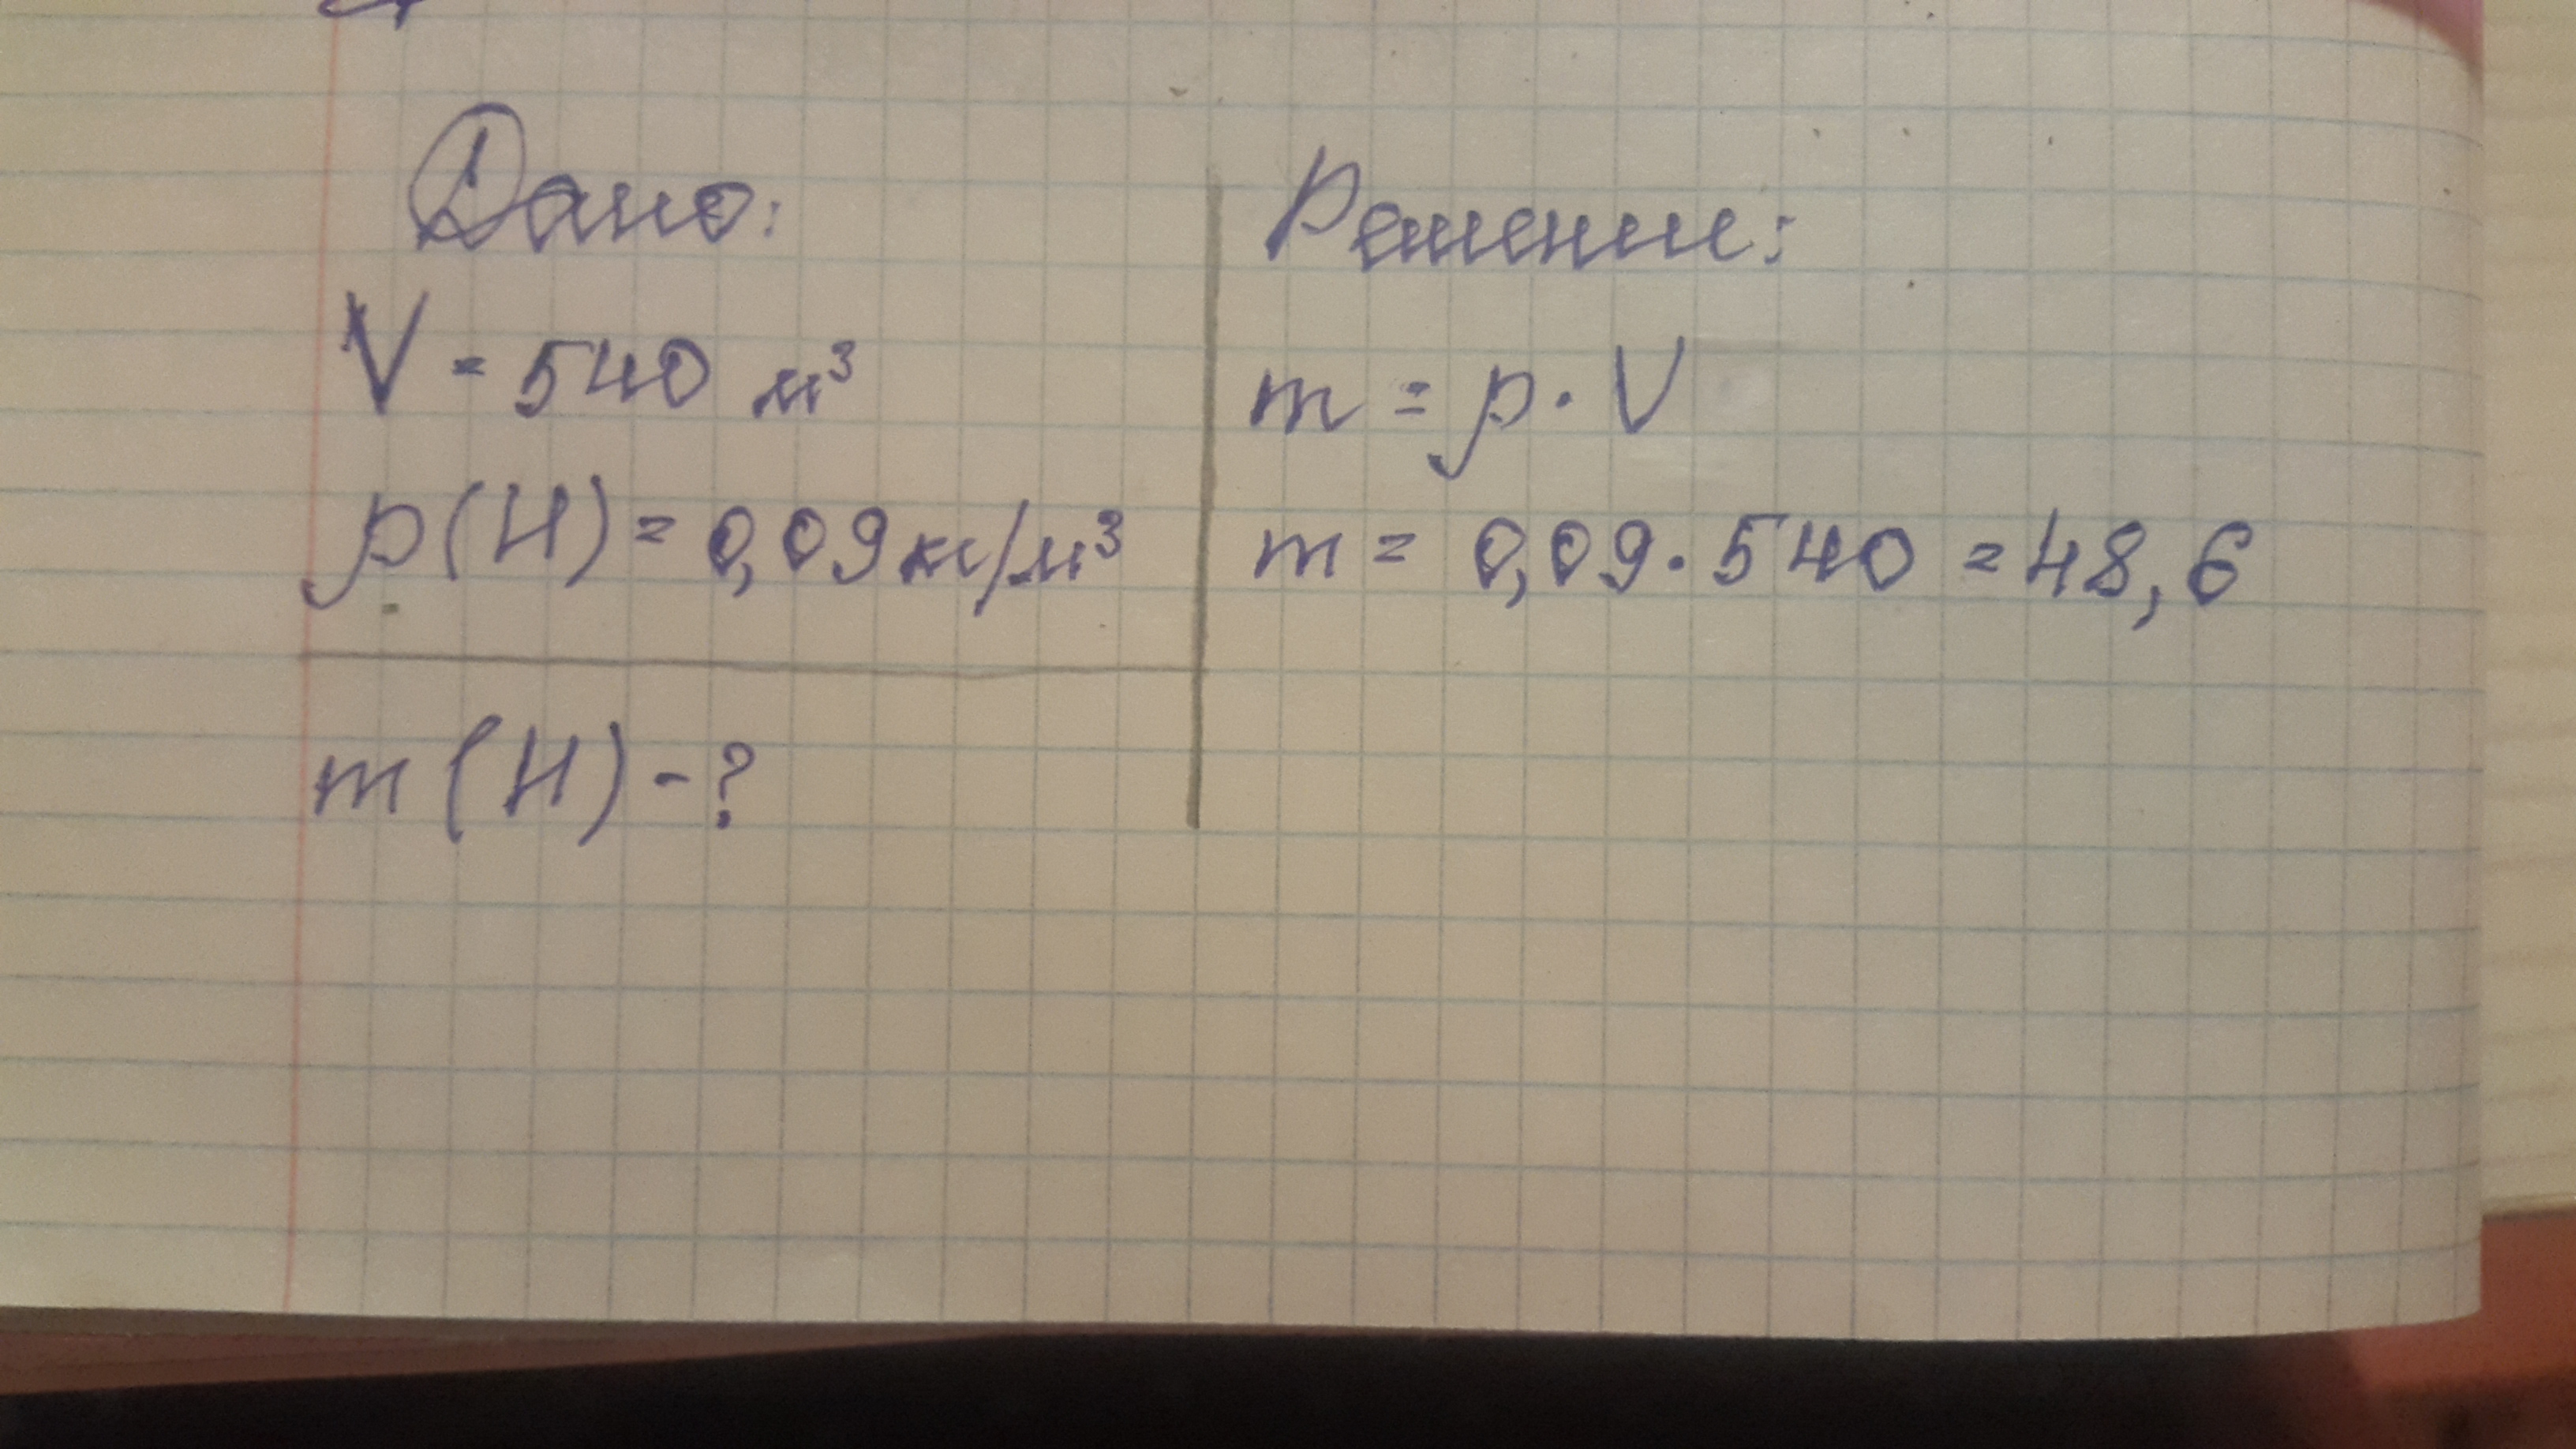 Дано:
V = 540 м³
p(H) = 0,09 кг/м³
m(H) - ?
Решение:
m = p · V
m = 0,09 · 540 = 48,6